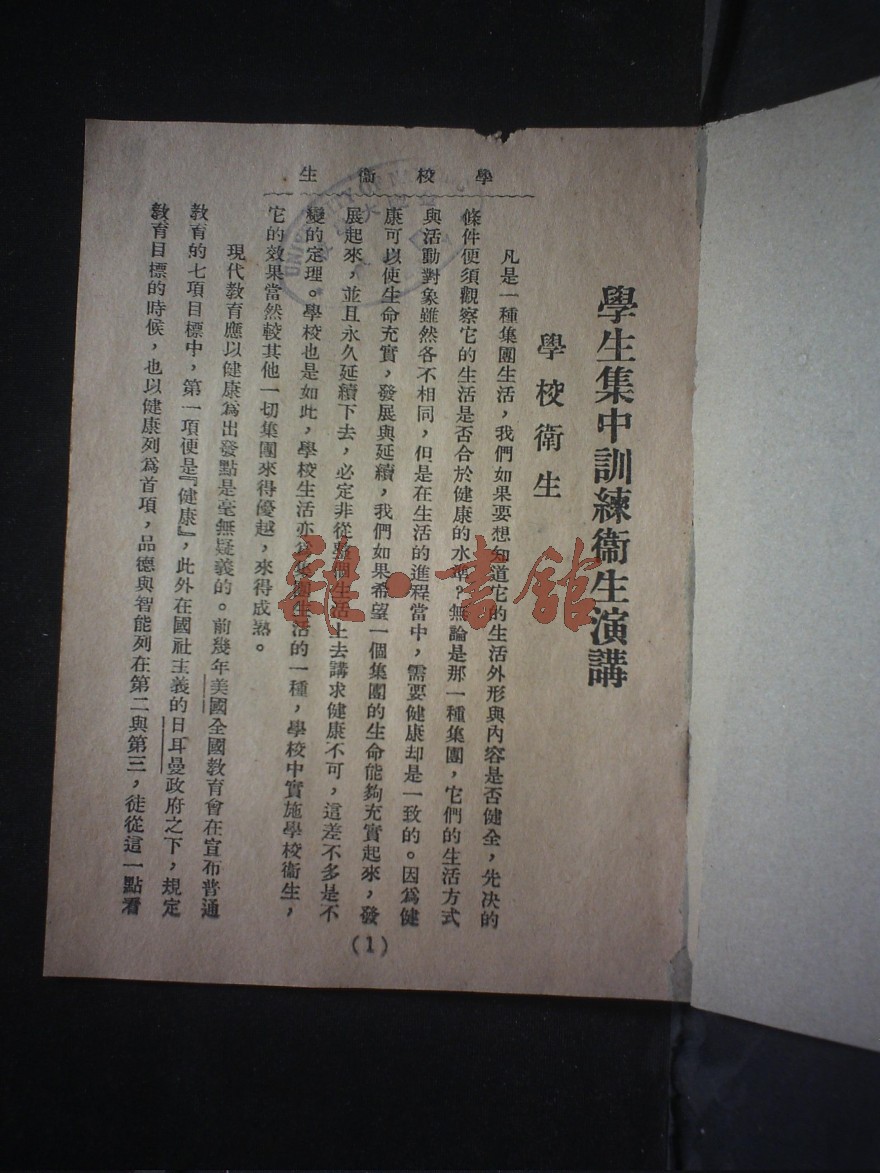 學校衞生
學生集中訓練衞生演講
學校衞生
凡是一種集團生活，我們如果要想知道它的生活外形與內容是否健全，先决的
條件便須觀察它的生活是否合於健康的水準？無論是那一種集團，它們的生活方式
與活動對象雖然各不相同，但是在生活的進程當中，需要健康却是一致的。因爲健
康可以使生命充實，發展與延續，我們如果希望一個集團的生命能夠充實起來，發
展起來，並且永久延續下去，必定非從整個生活上去講求健康不可，這差不多是不
變的定理。學校也是如此，學校生活亦爲集團生活的一種，學校中實施學校衞生，
它的效果當然較其他一切集團來得優越，來得成熟。
現代教育應以健康爲出發點是毫無疑義的。前幾年美國全國教育會在宣布普通
教育的七項目標中，第一項便是『健康』，此外在國社主義的日耳曼政府之下，規定
教育目標的時候，也以健康列爲首項，品德與智能列在第二與第三，徒從這一點看
(1)
雜·書館